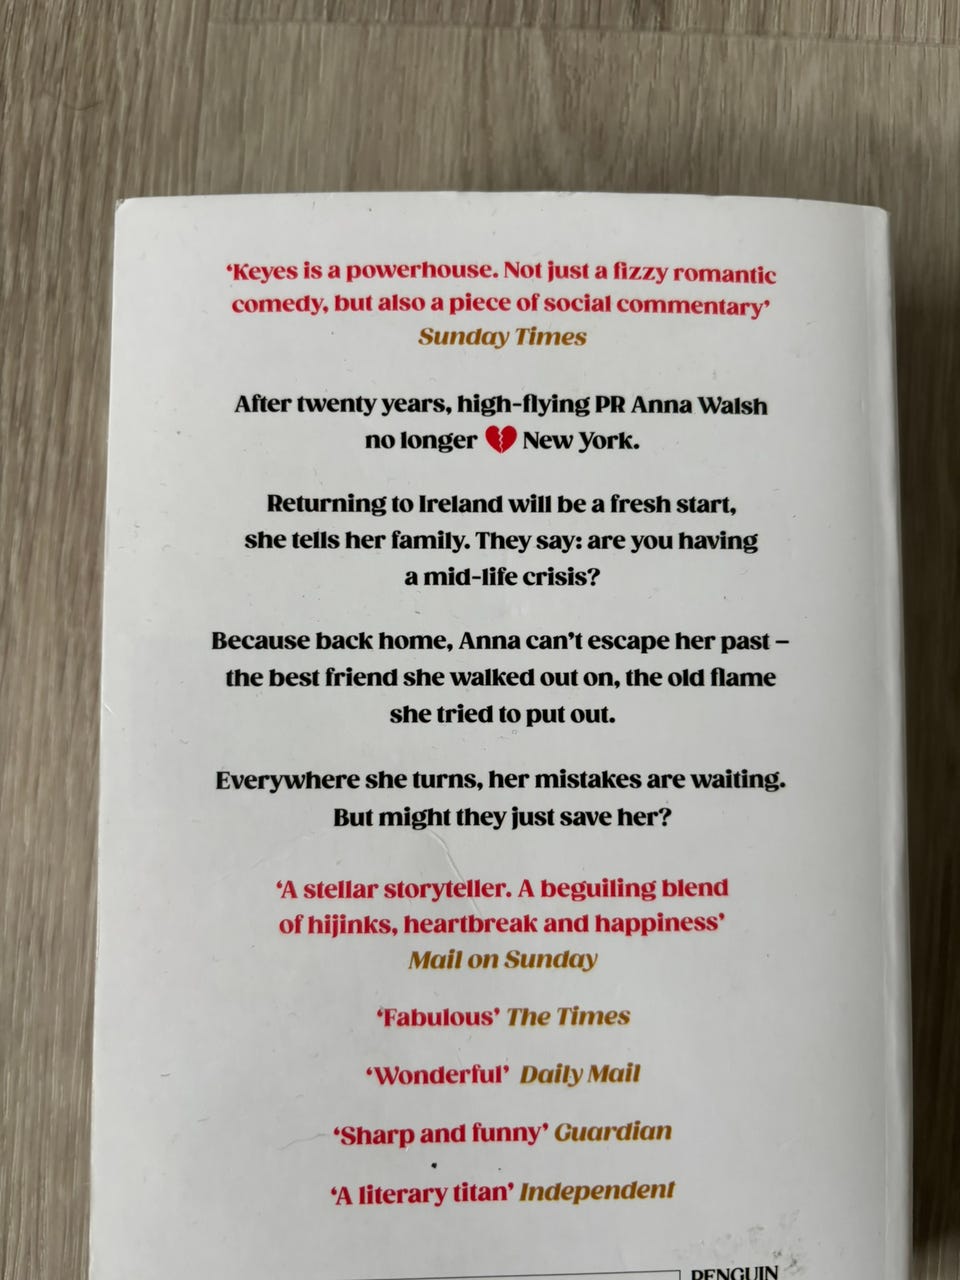 ‘Keyes is a powerhouse. Not just a fizzy romantic
comedy, but also a piece of social commentary’
Sunday Times
After twenty years, high-flying PR Anna Walsh
no longer 💔 New York.
Returning to Ireland will be a fresh start,
she tells her family. They say: are you having
a mid-life crisis?
Because back home, Anna can’t escape her past –
the best friend she walked out on, the old flame
she tried to put out.
Everywhere she turns, her mistakes are waiting.
But might they just save her?
‘A stellar storyteller. A beguiling blend
of hijinks, heartbreak and happiness’
Mail on Sunday
‘Fabulous’ The Times
‘Wonderful’ Daily Mail
‘Sharp and funny’ Guardian
‘A literary titan’ Independent
PENGUIN